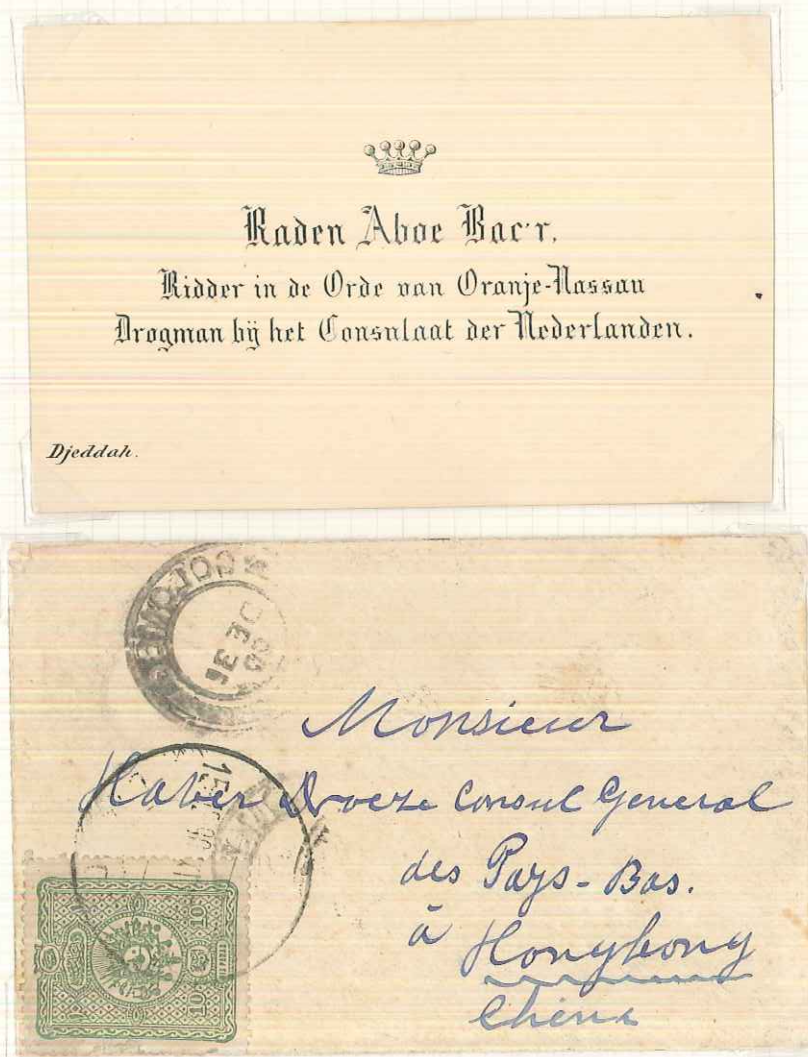 Raden Aboe Bac'r.
Ridder in de Orde van Oranje-Nassau
Drogman bij het Consulaat der Nederlanden.
Djeddah.
COLOMBO
DE 31
00
Monsieur
Haver Droeze Consul General
des Pays-Bas.
à Hongkong
Chine
10
10